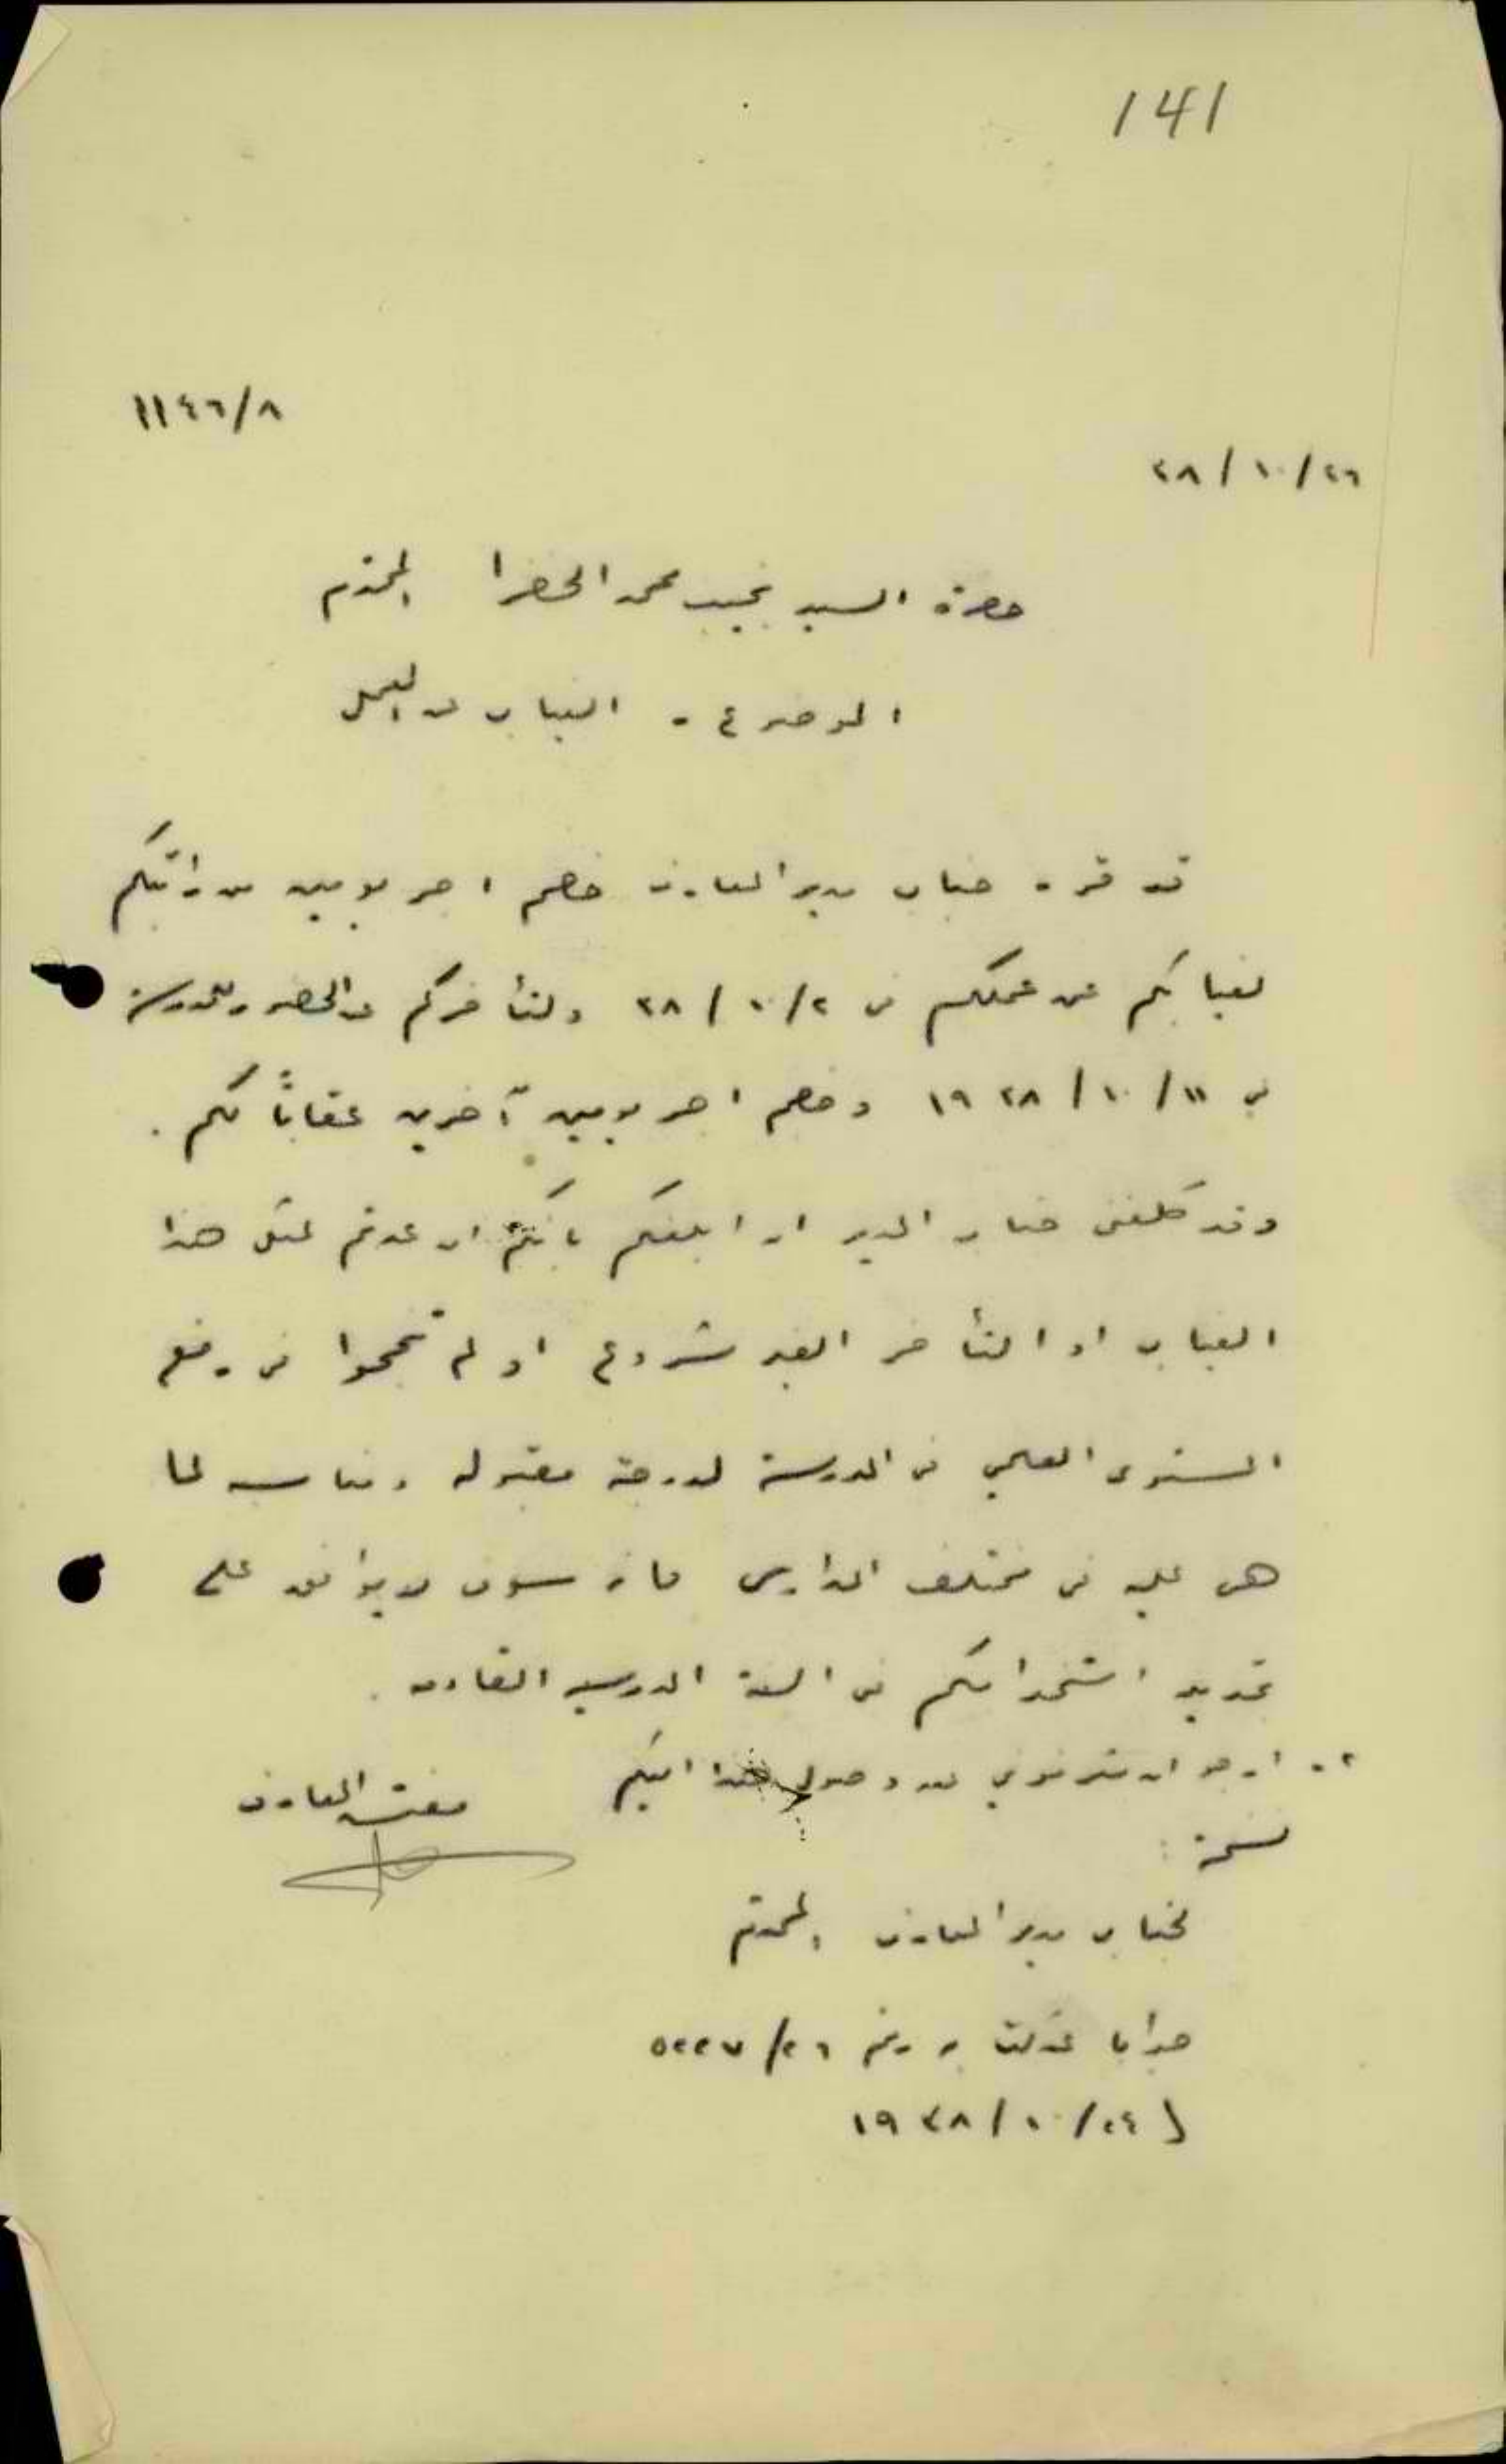 141
١١٤٦/٨
٢٦/١٠/٣٨
حضرة السيد نجيب محمد الخضرا المحترم
الموضوع - الغياب عن العمل
قد قرر جناب مدير المعارف خصم اجر يومين من راتبكم
لغيابكم عن عملكم في ٢/١٠/٣٨ ولتأخركم عن الحضور للمدرسة
في ١١/١٠/١٩٣٨ وخصم اجر يومين آخرين عقاباً لكم.
وقد كلفني جناب المدير ان ابلغكم بانكم ان عدتم لمثل هذا
الغياب او التأخر الغير مشروع او لم تنجحوا في رفع
المستوى العلمي في المدرسة لدرجة مقبولة ومناسبه لما
هي عليه في مختلف المدارس فانه سوف لا يوافق على
تجديد استخدامكم في السنة المدرسيه القادمه.
٢ - ارجو ان تعرفوني عند وصول هذا اليكم
مفتش المعارف
نسخة:
لجناب مدير المعارف المحترم
جوابا لمذكرته رقم ٢٦/٥٢٢٧
١٩٣٨/١٠/٢٤